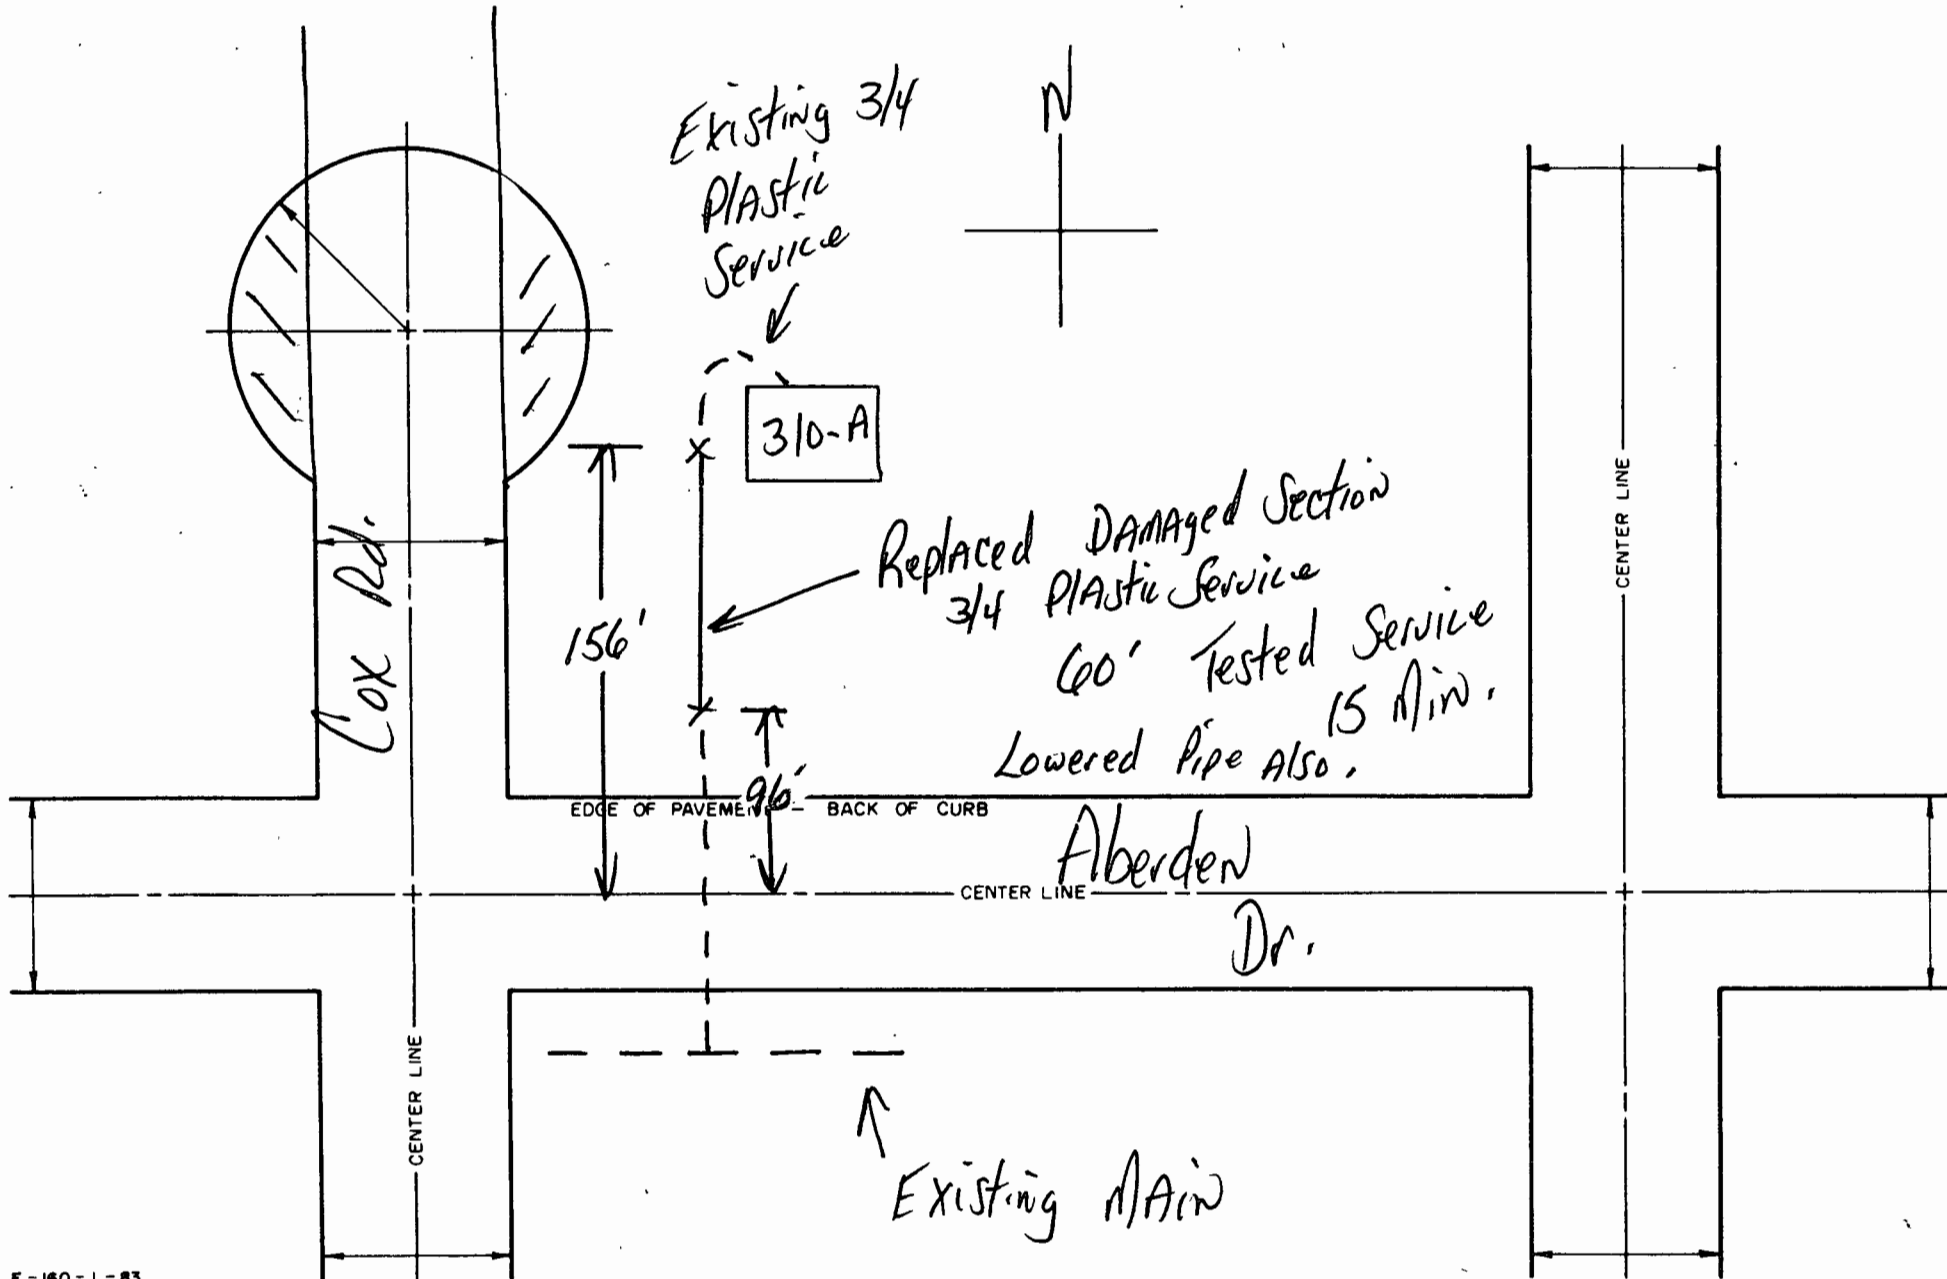 Existing 3/4
Plastic
Service
N
310-A
Cox Rd.
156'
Replaced Damaged Section
3/4 Plastic Service
60' Tested Service
15 Min.
Lowered Pipe Also.
96'
EDGE OF PAVEMENT - BACK OF CURB
Aberden
CENTER LINE
Dr.
CENTER LINE
CENTER LINE
Existing Main
F-160-1-83